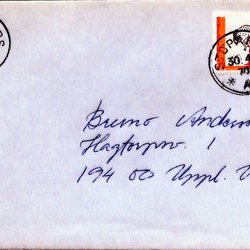 Bruno Anders
Hagtorpsv. 1
194 00 Uppl. V
30.